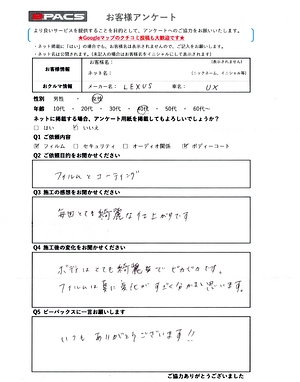 ePACS お客様アンケート
より良いサービスを提供することを目的として、アンケートへのご協力をお願いいたします。
★Googleマップのクチコミ投稿も大歓迎です★
・ネット掲載に「はい」の場合でも、お客様名は表示されませんので、ご記入をお願いします。
・ネット名は公開されます。(未記入の場合はお客様名をイニシャルにして表示されます)
お客様情報
お客様名:
(表示されません)
ネット名:
(ニックネーム、イニシャル等)
おクルマ情報
メーカー名: LEXUS
車名: UX
性別 男性 ・ 女性
年齢 10代 ・ 20代 ・ 30代 ・ 40代 ・ 50代 ・ 60代〜
ネットに掲載する場合、アンケート用紙を掲載してもよろしいでしょうか?
□ はい ☑ いいえ
Q1 ご依頼内容
☑ フィルム □ セキュリティ □ オーディオ関係 ☑ ボディーコート
Q2 ご依頼目的をお聞かせください
フィルムとコーティング
Q3 施工の感想をお聞かせください
毎回とても綺麗な仕上がりです
Q4 施工後の変化をお聞かせください
ボディはとても綺麗でピカピカです。
フィルムは夏に変化がすごくなるかと思います。
Q5 ピーパックスに一言お願いします
いつもありがとうございます!!
ご協力ありがとうございました